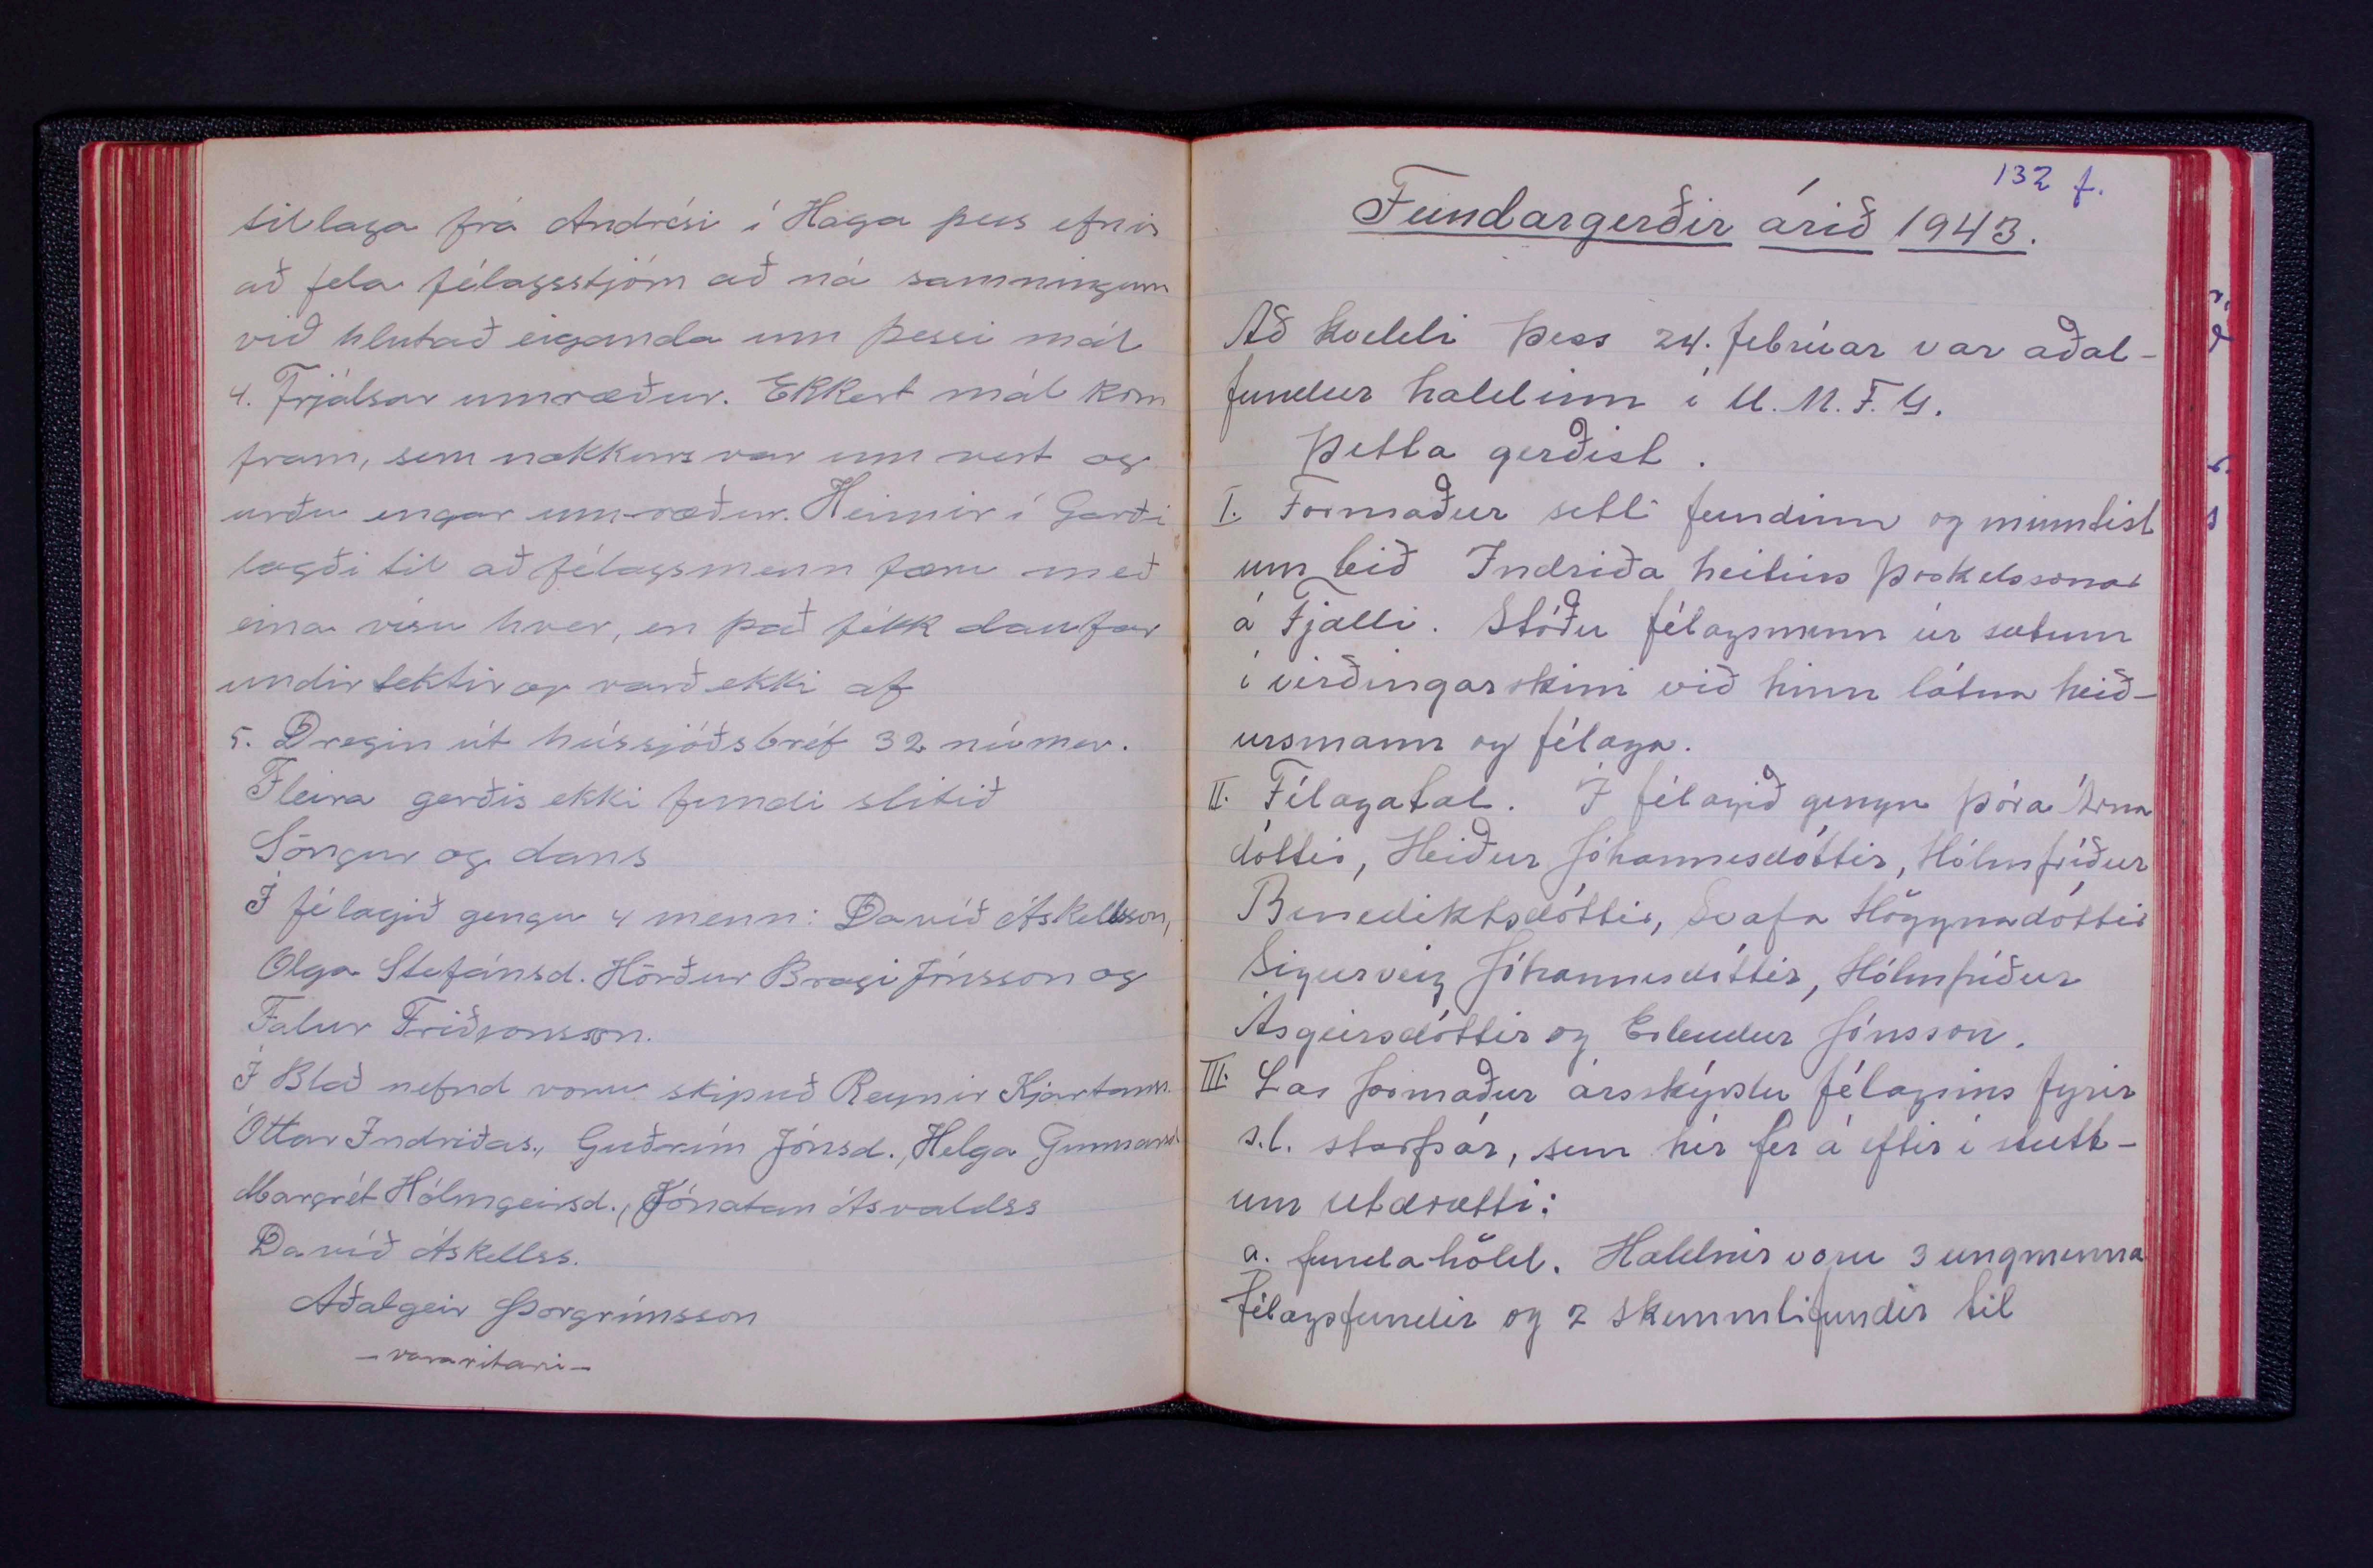 tillaga frá Andrési í Haga þess efnis
að fela félagsstjórn að ná samningum
við hlutað eiganda um þessi mál
4. Frjálsar umræður. Ekkert mál kom
fram, sem nokkurs var um vert og
urðu engar umræður. Heimir í Garði
lagði til að félagsmenn færu með
eina vísu hver, en það fékk daufar
undirtektir og varð ekki af
5. Dregin út hússjóðsbréf 32 númer.
Fleira gerðis ekki fundi slitið
Söngur og dans
Í félagið gengu 4 menn: Davíð Áskellsson,
Olga Stefánsd. Hörður Bragi Jónsson og
Falur Friðjonsson.
Í Blað nefnd voru skipuð Reynir Kjartanss.
Óttar Indriðas., Guðrún Jónsd., Helga Gunnarsd
Margrét Hólmgeirsd., Jónatan Ásvaldss
Davíð Áskellss.
Aðalgeir Þorgrímsson
- vararitari -
132 f.
Fundargerðir árið 1943.
Að kveldi þess 24. febrúar var aðal-
fundur haldinn í U.M.F.G.
Þetta gerðist.
I. Formaður setti fundinn og minntist
um leið Indriða heitins Þorkelssonar
á Fjalli. Stóðu félagsmenn úr sætum
í virðingarskini við hinn látna heið-
ursmann og félaga.
II. Félagatal. Í félagið gengu Þóra Árna
dóttir, Heiður Jóhannesdóttir, Hólmfríður
Benediktsdóttir, Svafa Höggnadóttir
Sigurveig Jóhannesdóttir, Hólmfríður
Ásgeirsdóttir og Erlendur Jónsson.
III. Las formaður ársskýrslu félagsins fyrir
s.l. starfsár, sem hér fer á eftir í stutt-
um útdrætti:
a. fundahöld. Haldnir voru 3 ungmenna
félagsfundir og 2 skemmtifundir til